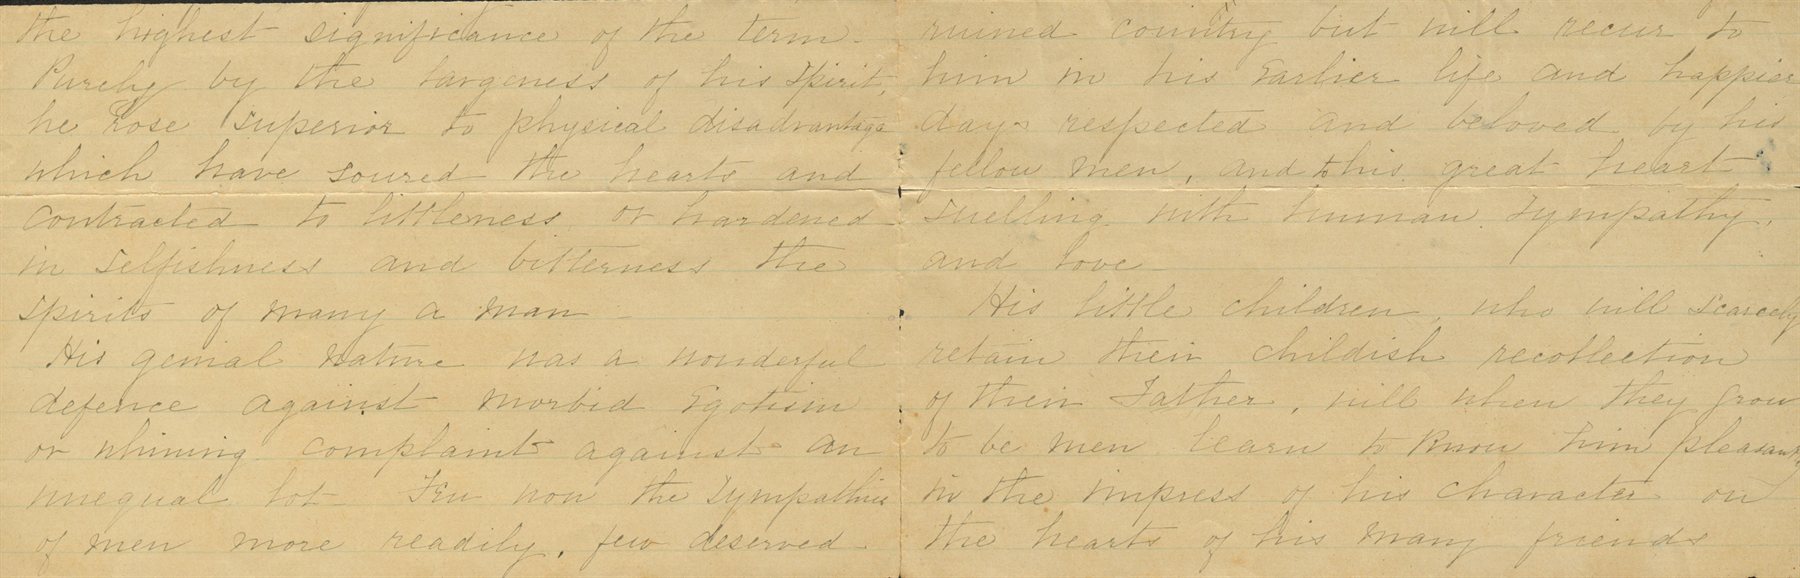 the highest significance of the term -
Purely by the largeness of his spirit,
he rose superior to physical disadvantage
which have soured the hearts and
contracted to littleness or hardened
in selfishness and bitterness the
spirits of many a man -
His genial nature was a wonderful
defence against morbid Egotism
or whining complaint against an
unequal lot - Few won the Sympathies
of men more readily, few deserved
ruined country but will recur to
him in his Earlier life and happier
days respected and beloved by his
fellow men, and this great heart
swelling with human sympathy,
and love -
His little children, who will scarcely
retain their childish recollection
of their Father, will when they grow
to be men learn to know him
in the impress of his character on
the hearts of his many friends